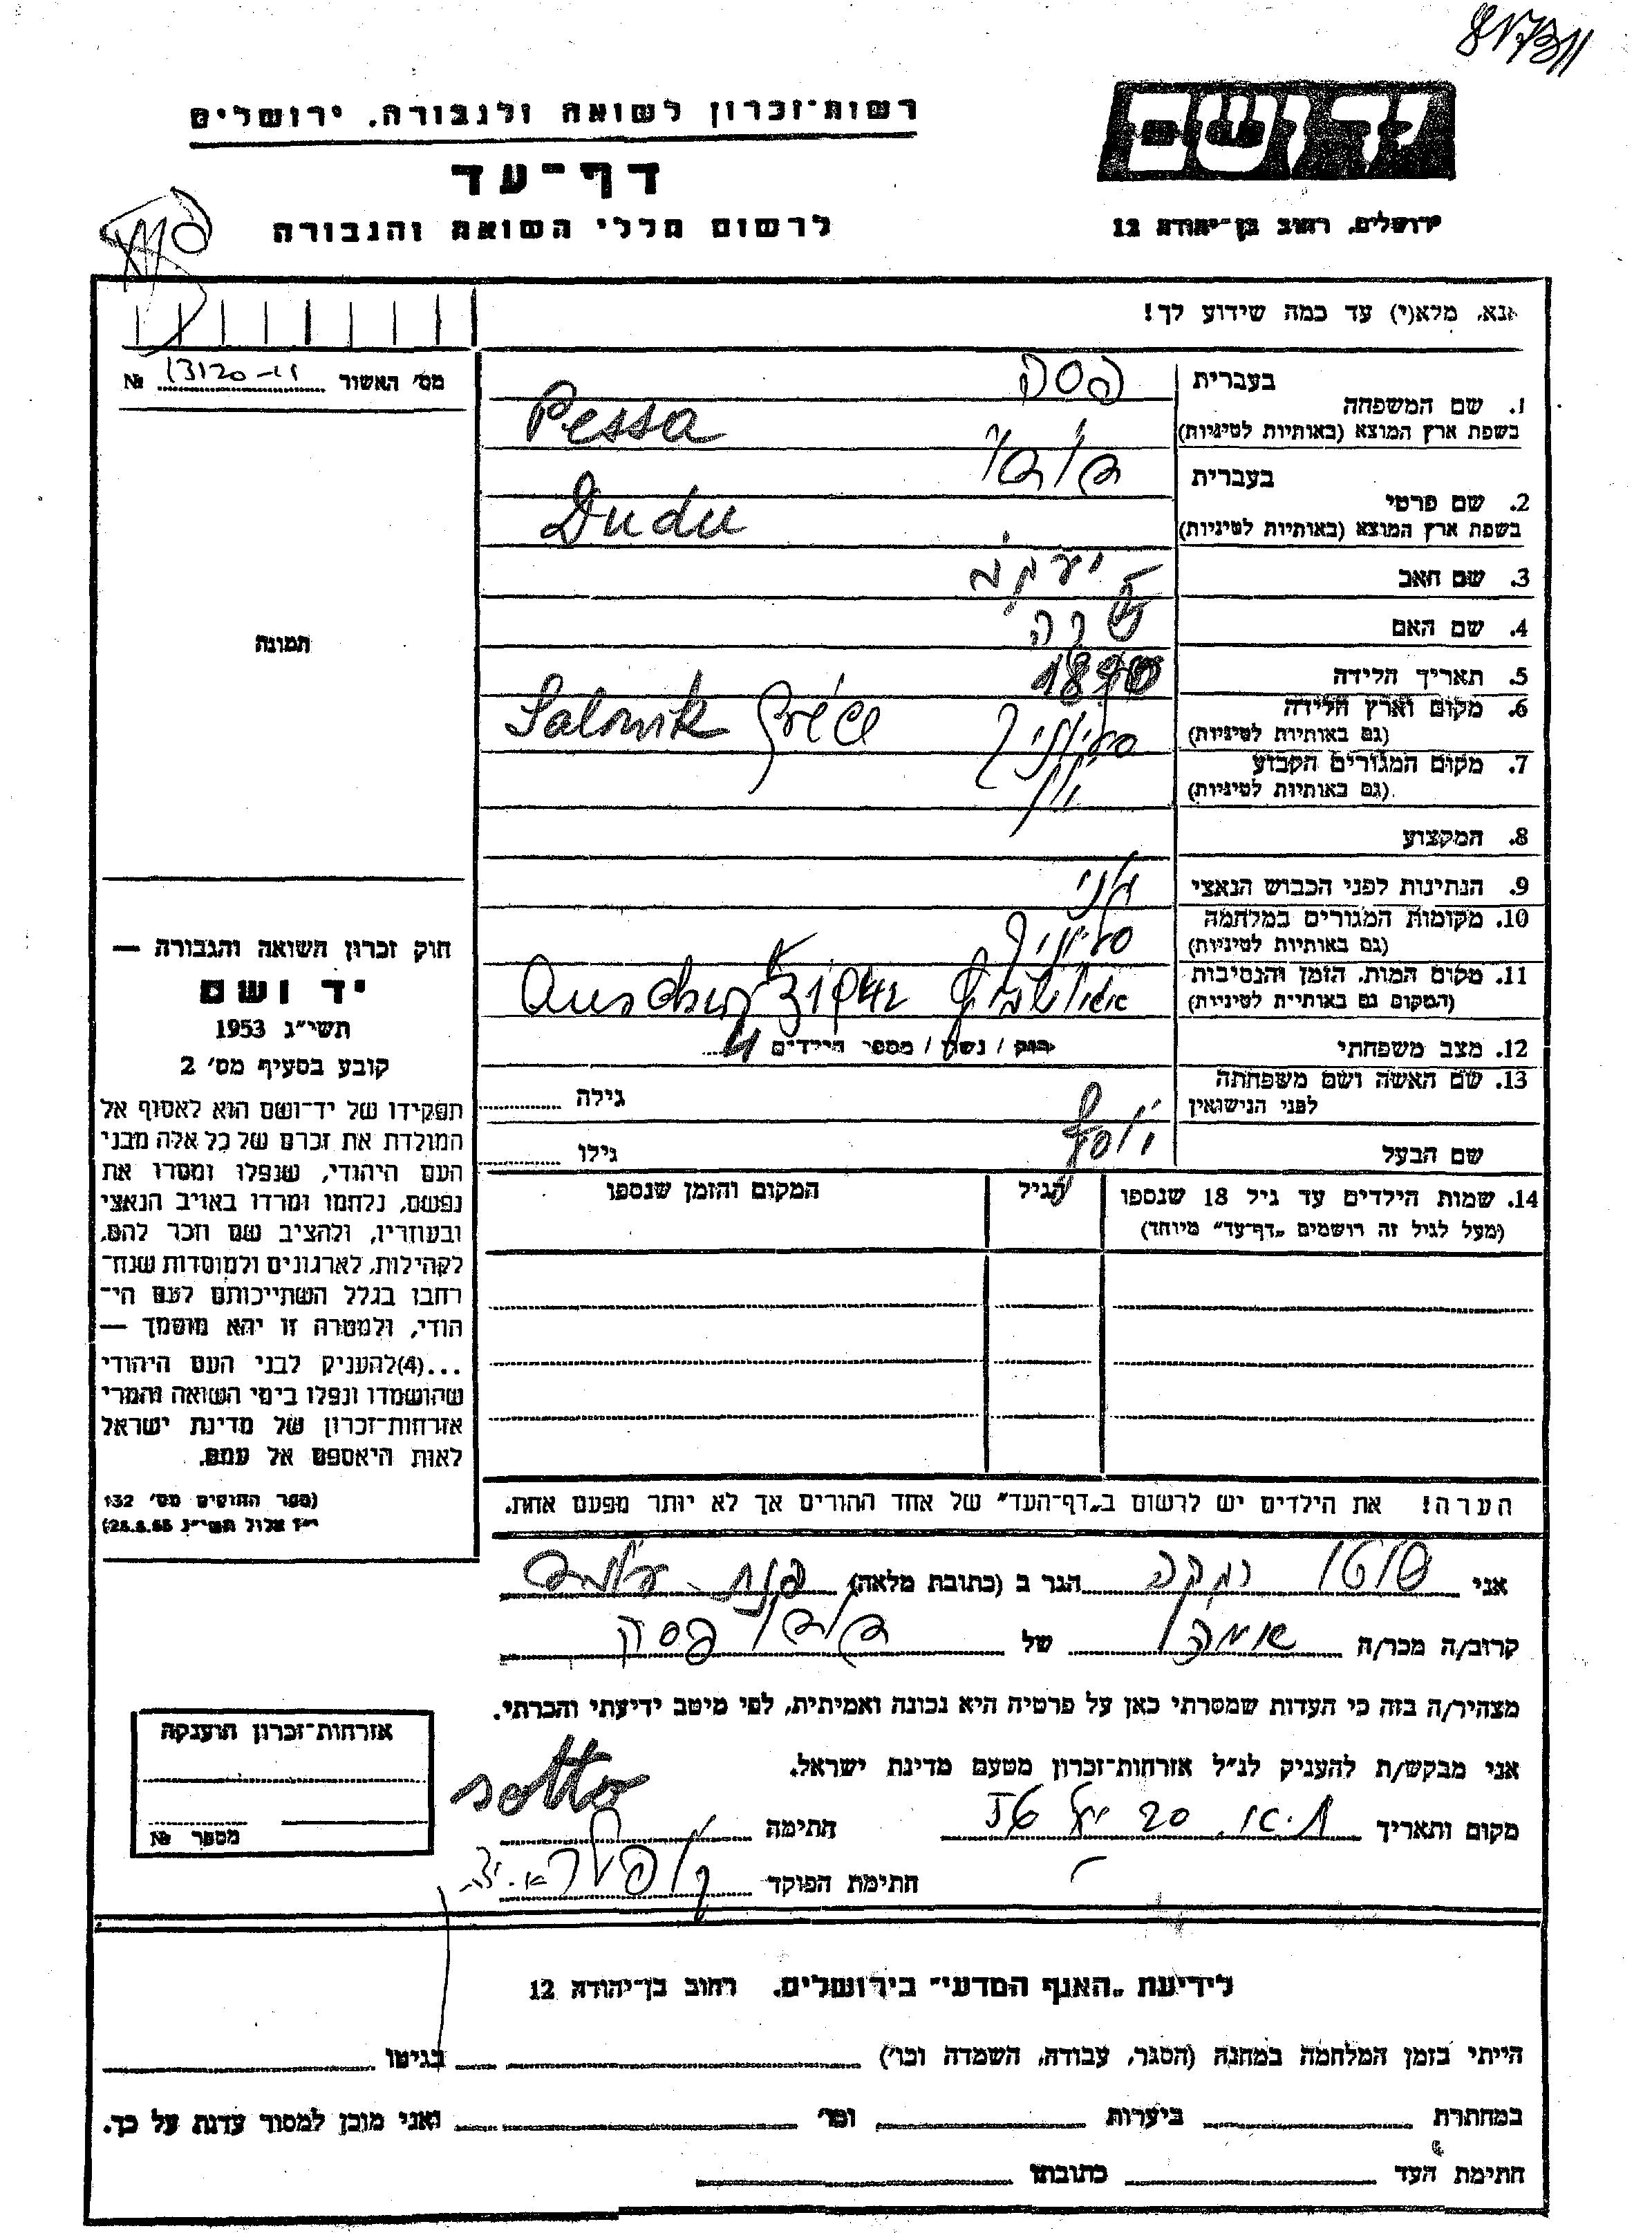 רשות־זכרון לשואה ולגבורה, ירושלים
דף־עד
לרשום חללי השואה והגבורה
יד ושם
ירושלים, רחוב בן־יהודה 12
אנא, מלא(י) עד כמה שידוע לך!
מס׳ האשור №
1. שם המשפחה
בעברית פסח
בשפת ארץ המוצא (באותיות לטיניות) Pessa
2. שם פרטי
בעברית דודו
בשפת ארץ המוצא (באותיות לטיניות) Dudu
3. שם האב יעקב
4. שם האם שרה
5. תאריך הלידה
6. מקום וארץ הלידה
(גם באותיות לטיניות) סלוניק Salonik
7. מקום המגורים הקבוע
(גם באותיות לטיניות) יון
8. המקצוע
9. הנתינות לפני הכבוש הנאצי יוני
10. מקומות המגורים במלחמה
(גם באותיות לטיניות) סלוניק
11. מקום המות, הזמן והנסיבות
(המקום גם באותיות לטיניות) אושוויץ
12. מצב משפחתי רווק / נשוי / מספר הילדים 4
13. שם האשה ושם משפחתה
לפני הנישואין גילה
שם הבעל יוסף גילו
14. שמות הילדים עד גיל 18 שנספו
(מעל לגיל זה רושמים „דף־עד״ מיוחד)
הגיל
המקום והזמן שנספו
תמונה
חוק זכרון השואה והגבורה —
יד ושם
תשי״ג 1953
קובע בסעיף מס׳ 2
תפקידו של יד־ושם הוא לאסוף אל
המולדת את זכרם של כל אלה מבני
העם היהודי, שנפלו ומסרו את
נפשם, נלחמו ומרדו באויב הנאצי
ובעוזריו, ולהציב שם וזכר להם,
לקהילות, לארגונים ולמוסדות שנח־
רחבו בגלל השתייכותם לעם הי־
הודי, ולמטרה זו יהא מוסמך —
...(4)להעניק לבני העם היהודי
שהושמדו ונפלו בימי השואה והמרי
אזרחות־זכרון של מדינת ישראל
לאות היאספם אל עמם.
(ספר החוקים מס׳ 132
הערה! את הילדים יש לרשום ב„דף־העד״ של אחד ההורים אך לא יותר מפעם אחת.
אני סוטו רבקה הגר ב (כתובת מלאה)
קרוב/ה מכר/ה של דודו פסח
מצהיר/ה בזה כי העדות שמסרתי כאן על פרטיה היא נכונה ואמיתית, לפי מיטב ידיעתי והכרתי.
אני מבקש/ת להעניק לנ״ל אזרחות־זכרון מטעם מדינת ישראל.
מקום ותאריך ת.א. 20 חתימה sotto
חתימת הפוקד
אזרחות־זכרון הוענקה
מספר №
לידיעת „האגף המדעי״ בירושלים. רחוב בן־יהודה 12
הייתי בזמן המלחמה במחנה (הסגר, עבודה, השמדה וכו׳) בגיטו
במחתרת ביערות וכו׳ ואני מוכן למסור עדות על כך.
חתימת העד כתובתו